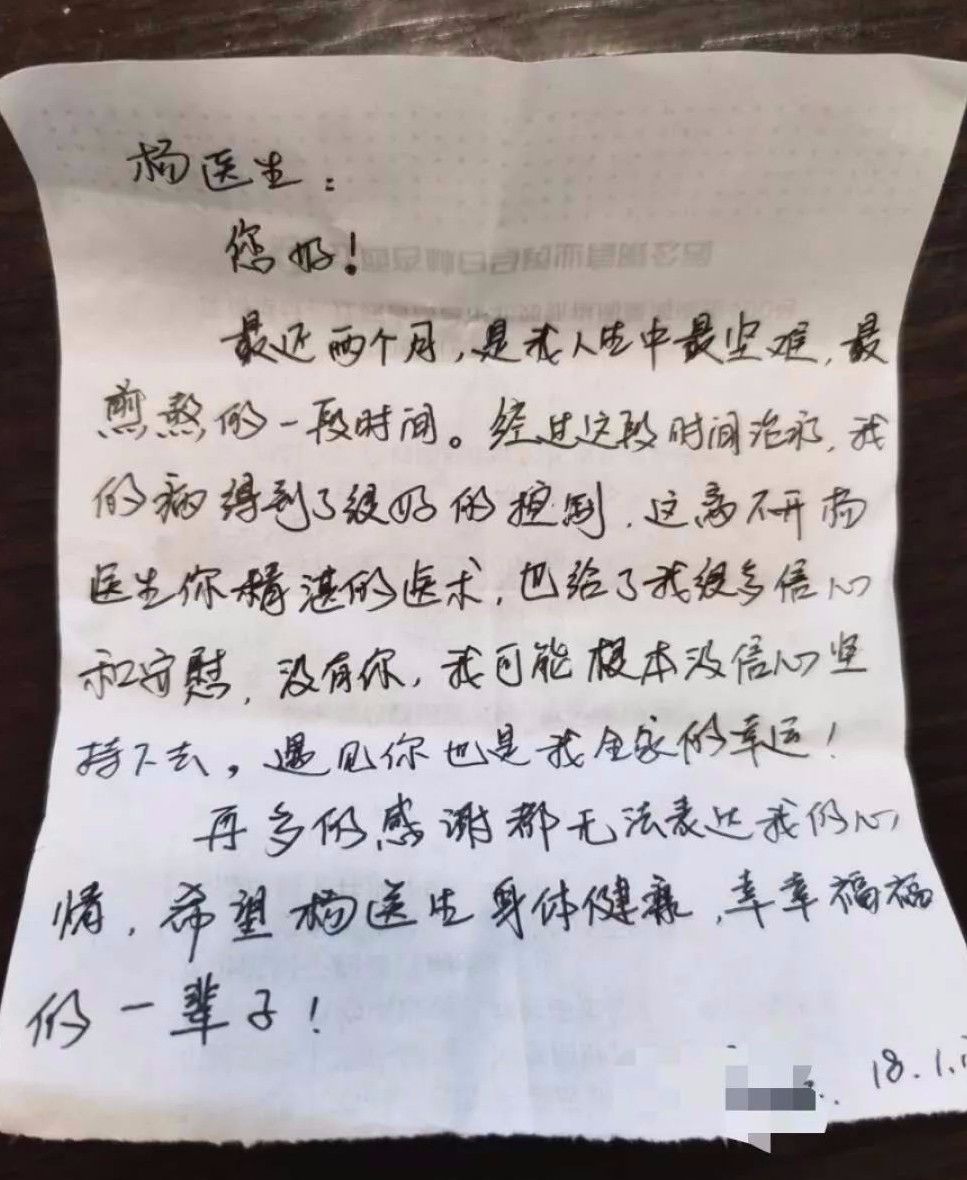 杨医生：
您好！
最近两个月，是我人生中最坚难，最
煎熬的一段时间。经过这段时间治疗，我
的病得到了很好的控制，这离不开杨
医生你精湛的医术，也给了我很多信心
和安慰，没有你，我可能根本没信心坚
持下去。遇见你也是我全家的幸运！
再多的感谢都无法表达我的心
情，希望杨医生身体健康，幸幸福福
的一辈子！
18.1.